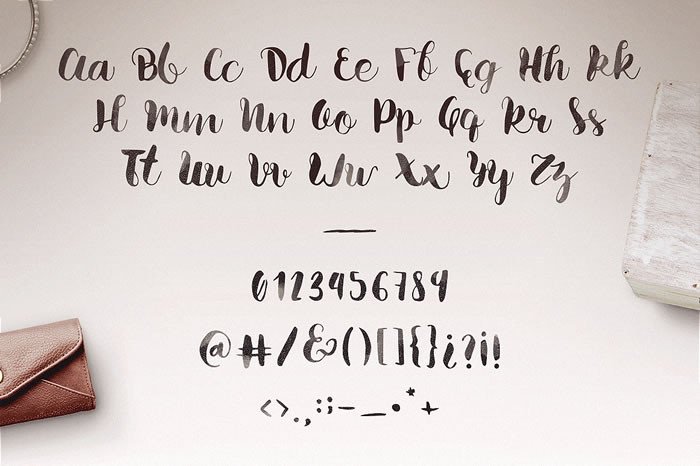 Aa Bb Cc Dd Ee Ff Gg Hh Kk
Ll Mm Nn Oo Pp Qq Rr Ss
Tt Uu Vv Ww Xx Yy Zz
0123456789
@#/&()[]{}¿?¡!
<>.,:;-_•*+